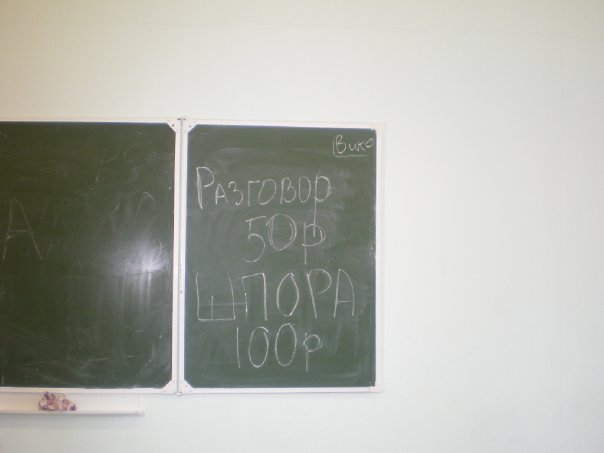 А
Вико
Разговор
50р
ШПОРА
100р